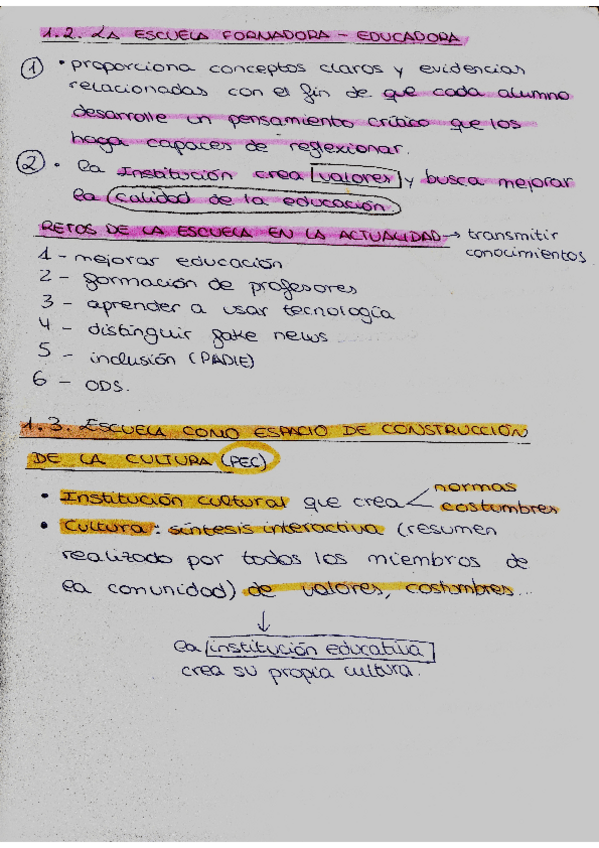 1.2. LA ESCUELA FORMADORA - EDUCADORA
① • proporciona conceptos claros y evidencias
relacionadas con el fin de que cada alumno
desarrolle un pensamiento crítico que los
haga capaces de reflexionar.
② • la Institución crea valores y busca mejorar
la calidad de la educación
RETOS DE LA ESCUELA EN LA ACTUALIDAD → transmitir
conocimientos
1 - mejorar educación
2 - formación de profesores
3 - aprender a usar tecnología
4 - distinguir fake news
5 - inclusión (PADIE)
6 - ODS.
1.3. ESCUELA COMO ESPACIO DE CONSTRUCCIÓN
DE LA CULTURA (PEC)
• Institución cultural que crea < normas
costumbres
• Cultura: síntesis interactiva (resumen
realizado por todos los miembros de
la comunidad) de valores, costumbres...
↓
la institución educativa
crea su propia cultura.